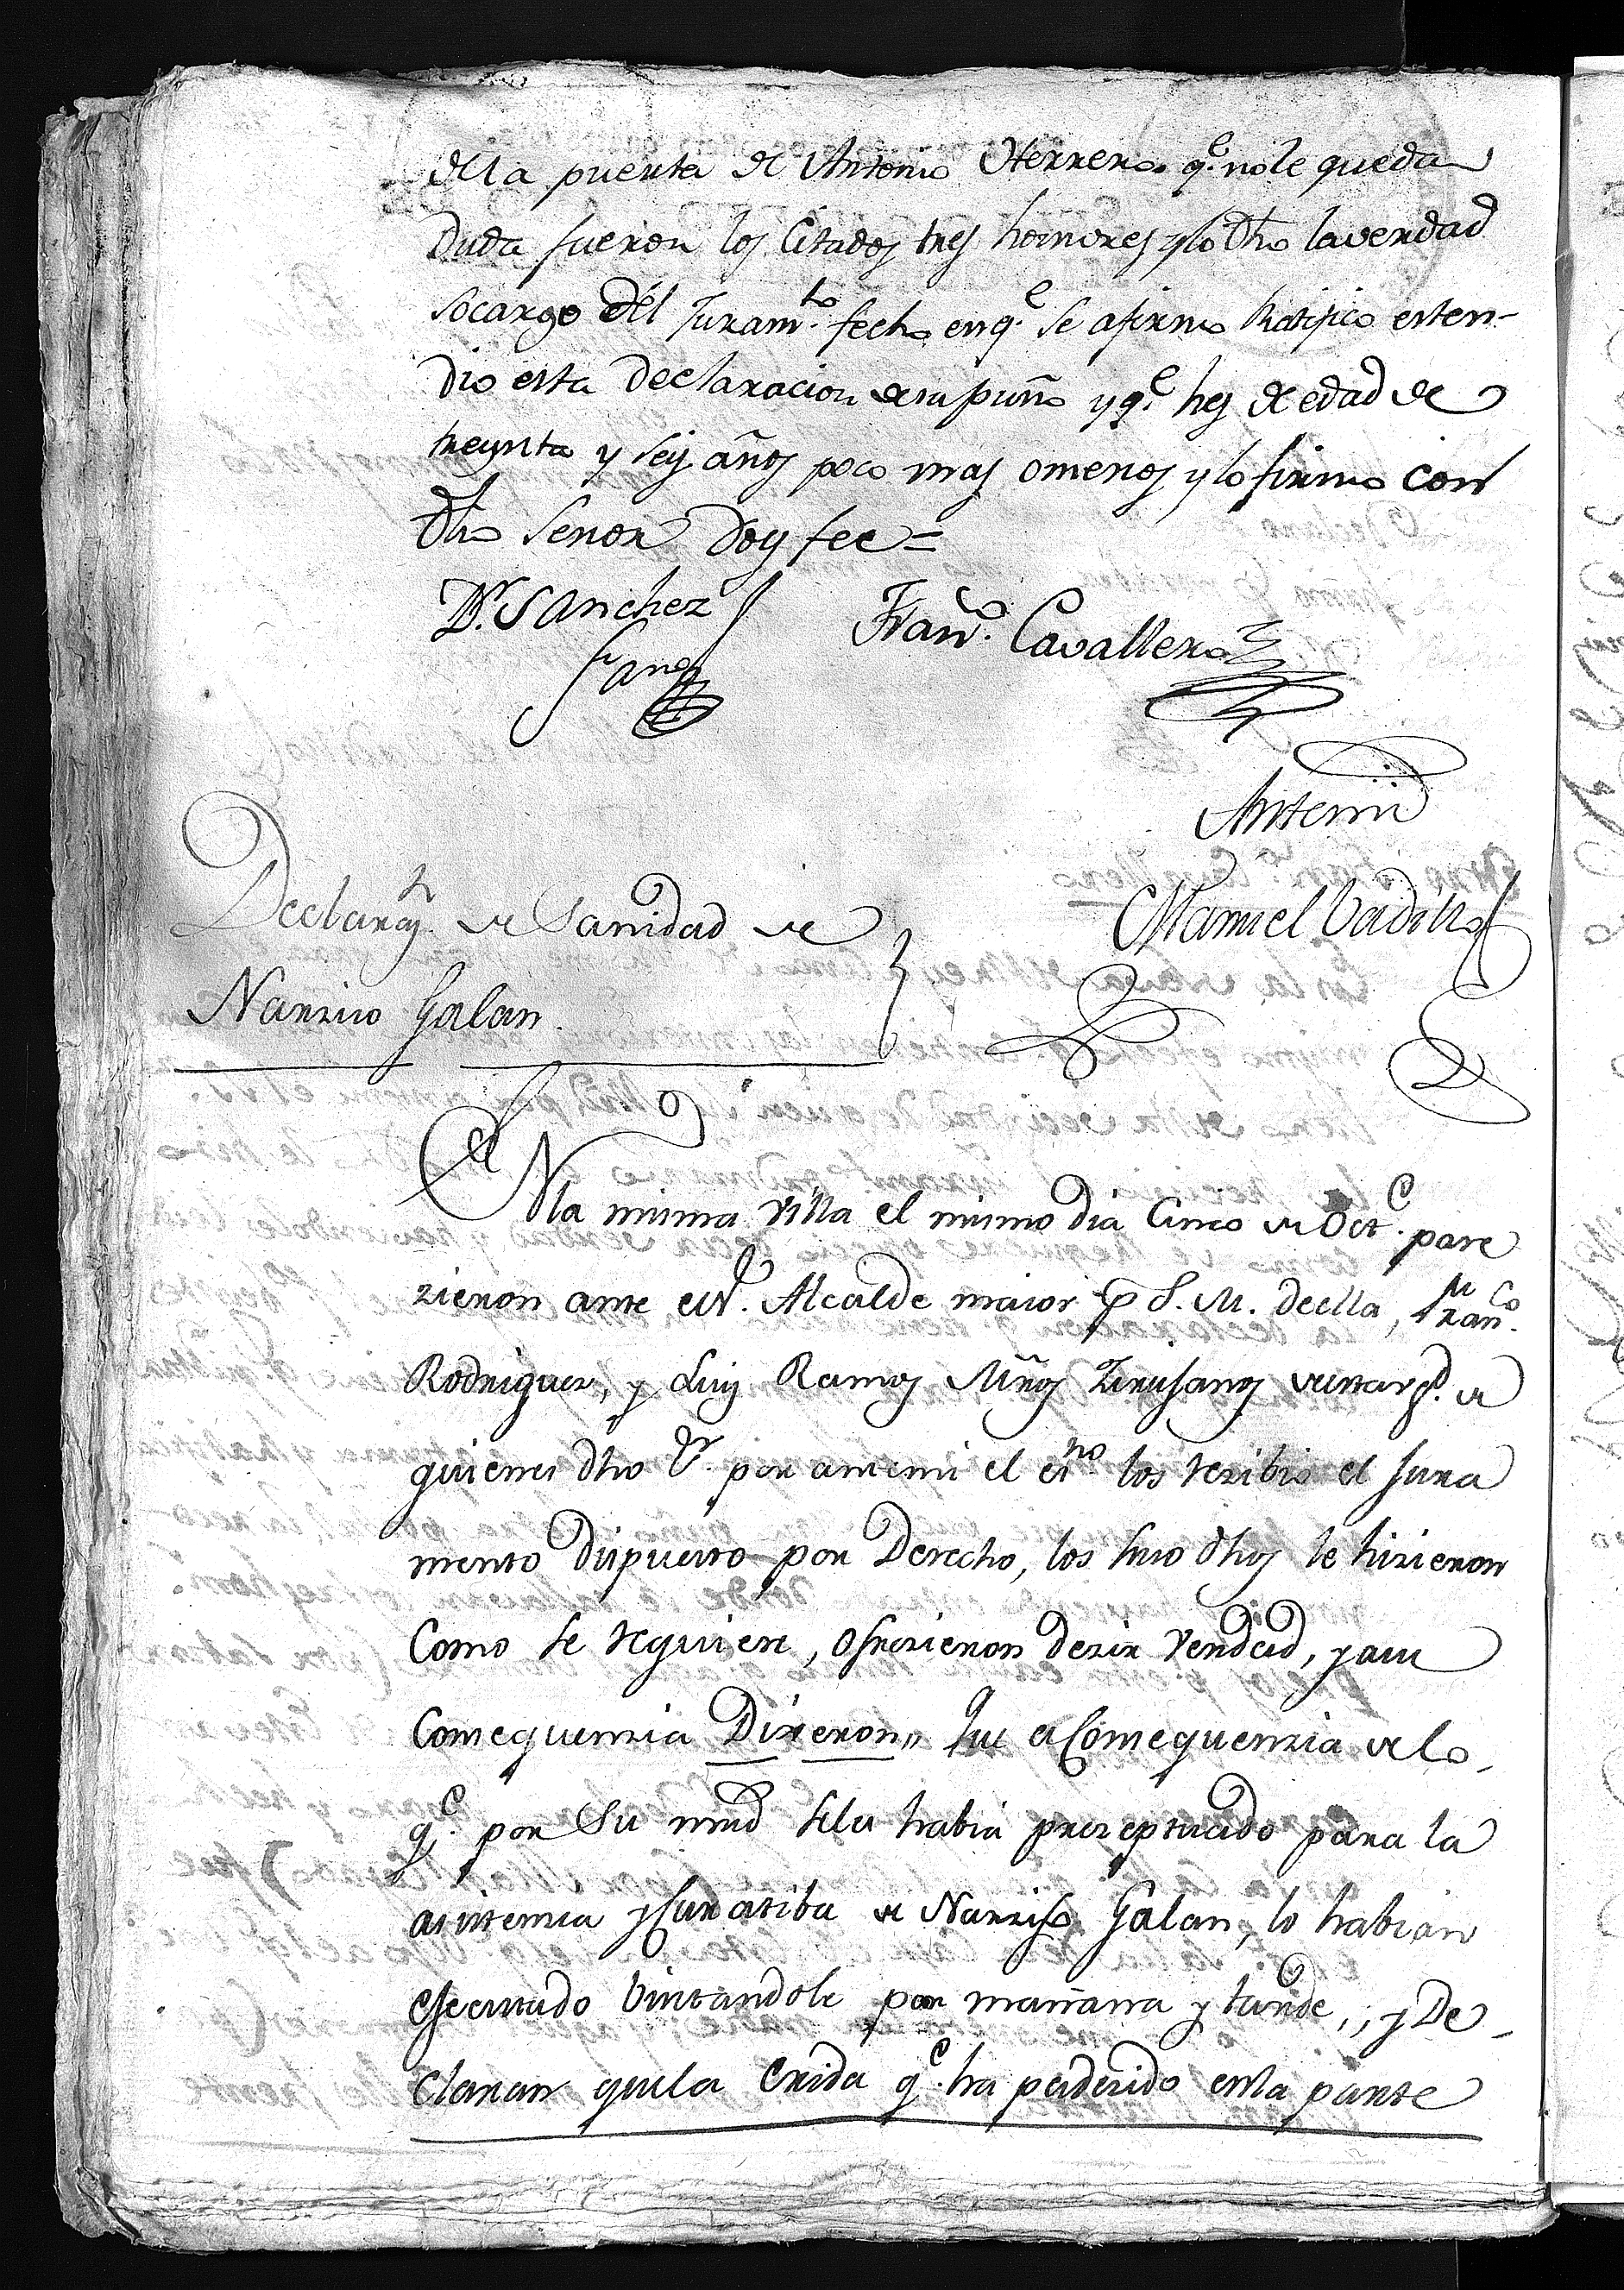 della puerta de Antonio Herrero q.e nole queda
duda fueron los Citados tres hombres y lo dho laverdad
socargo del Juram.to fecho enq.e se afirmo Ratifico esten-
dio esta declaracion desu puño y q.e hes de edad de
treynta y seis años poco mas omenos y lo firmo con
dho Señor doy fee =
D.r Sanchez
Fran.co Cavallero
Antemi
Manuel Vadillo
Declaraz.n de Sanidad de
Narziso Galan.
EN la misma villa el mismo dia Cinco de Oct.e pare
zieron ante el S.r Alcalde maior p S. M. de ella, Fran.co
Rodriguez, y Luis Ramos Mños Zirujanos
quienes dho S.r por antemi el es.no los rezibio el Jura
mento dispuesto por Derecho, los suso dhos le hizieron
Como se requiere, ofrezieron dezir verdad, y a su
Consequenzia Dixeron,, Que a Consequenzia de lo
q.e por Su mrd seles habia prezeptuado para la
asistenzia y Curatiba de Narziso Galan, lo habian
ejecutado visitandole por mañana y tarde,, y De-
claran que la erida q.e ha padezido en la parte